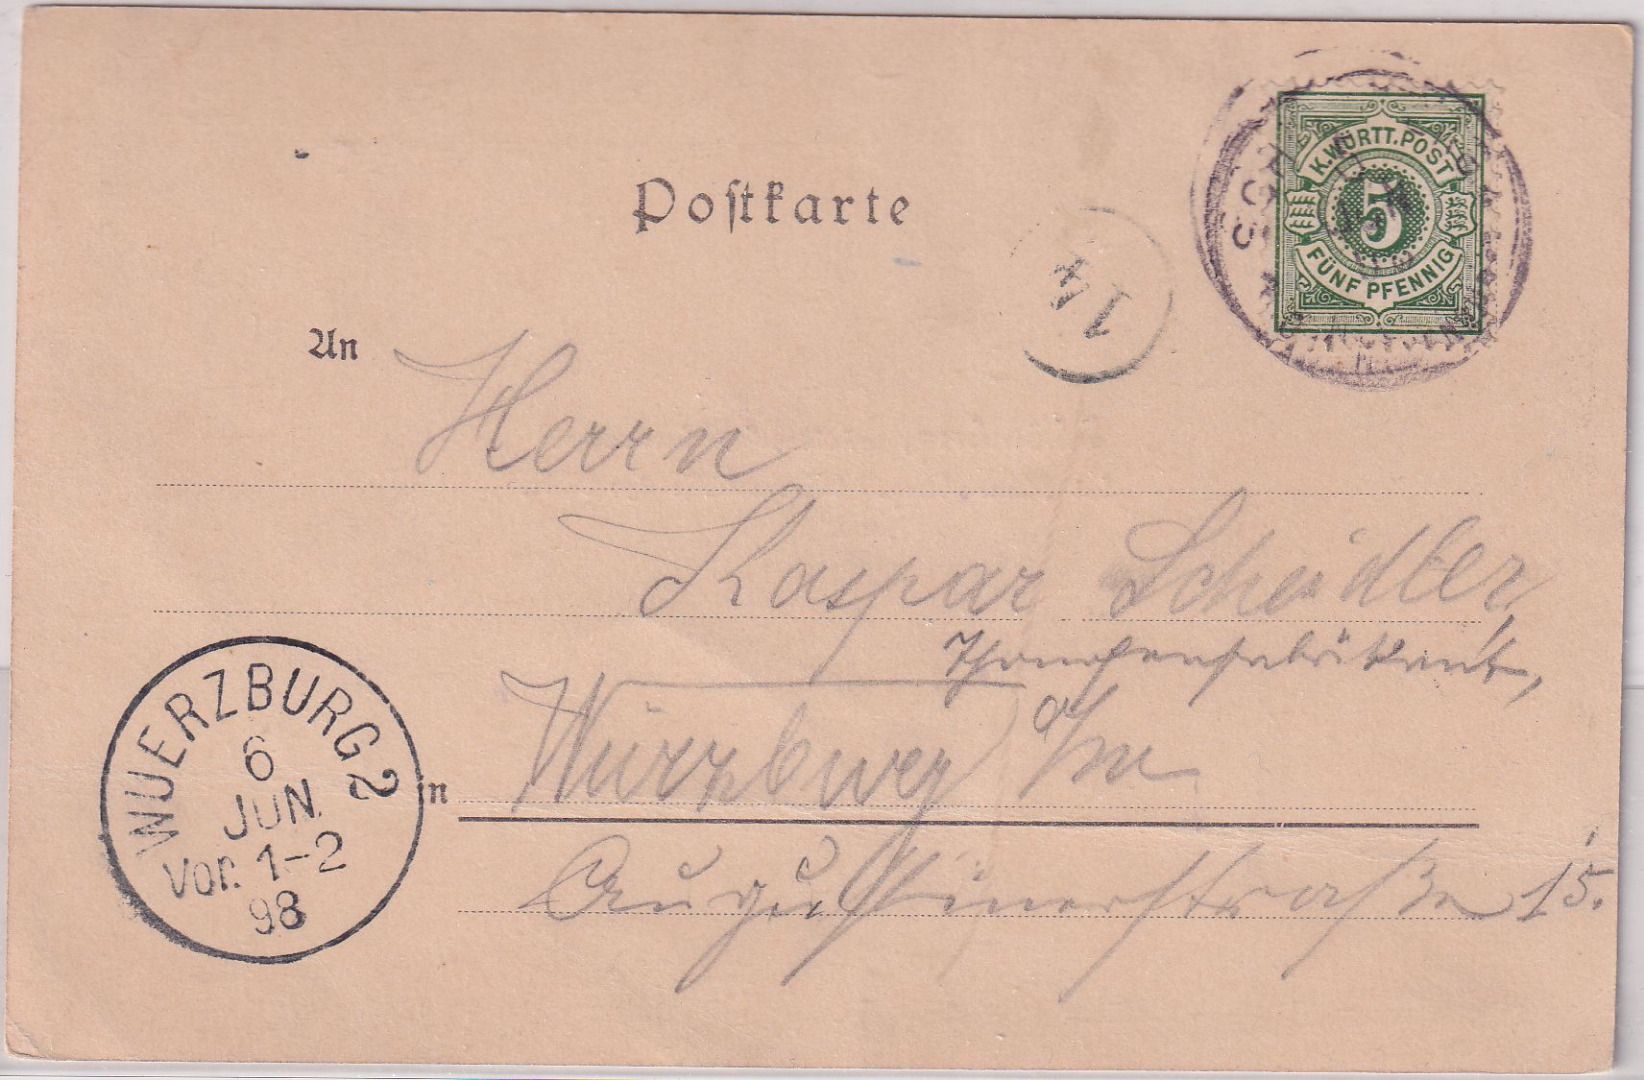 Postkarte
K.WÜRTT.POST
5
FÜNF PFENNIG
14
An
Herrn
Kaspar Scheidler,
in Würzburg a/m
Augustinerstraße 15.
WUERZBURG 2
6
JUN.
Vor. 1-2
98